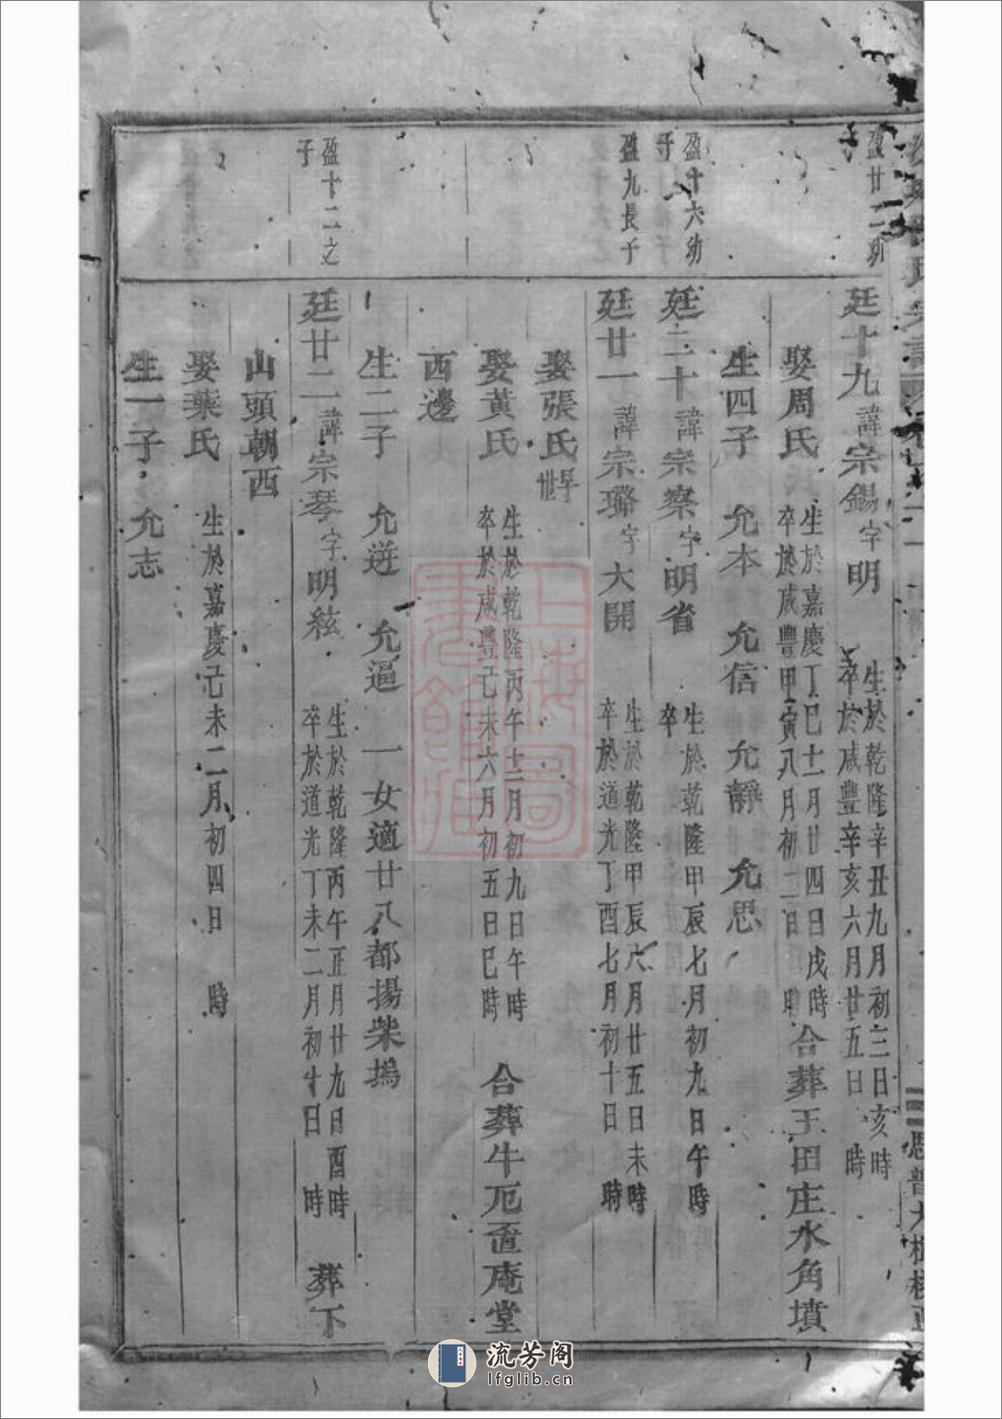 盈廿二幼
子
廷十九諱宗錫字明
生於乾隆辛丑九月初三日亥時
卒於咸豐辛亥六月廿五日 時
娶周氏
生於嘉慶丁巳十一月廿四日戌時
卒於咸豐甲寅八月初二日 時
合葬王田庄水角墳
生四子 允本 允信 允靜 允思
盈十六幼
子
廷二十諱宗察字明省
生於乾隆甲辰七月初九日午時
卒
盈九長子
廷廿一諱宗璐字大開
生於乾隆甲辰八月廿五日未時
卒於道光丁酉七月初十日 時
娶張氏
早
世
娶黃氏
生於乾隆丙午十二月初九日午時
卒於咸豐己未六月初五日巳時
合葬牛厄畬庵堂
西邊
生二子 允逬 允逼 一女適廿八都揚柴塢
盈十二之
子
廷廿二諱宗琴字明絃
生於乾隆丙午正月廿九日酉時
卒於道光丁未二月初十日 時
葬下
山頭朝西
娶葉氏
生於嘉慶己未二月初四日 時
生一子 允志
上海圖
書館藏
流芳阁
lfglib.cn